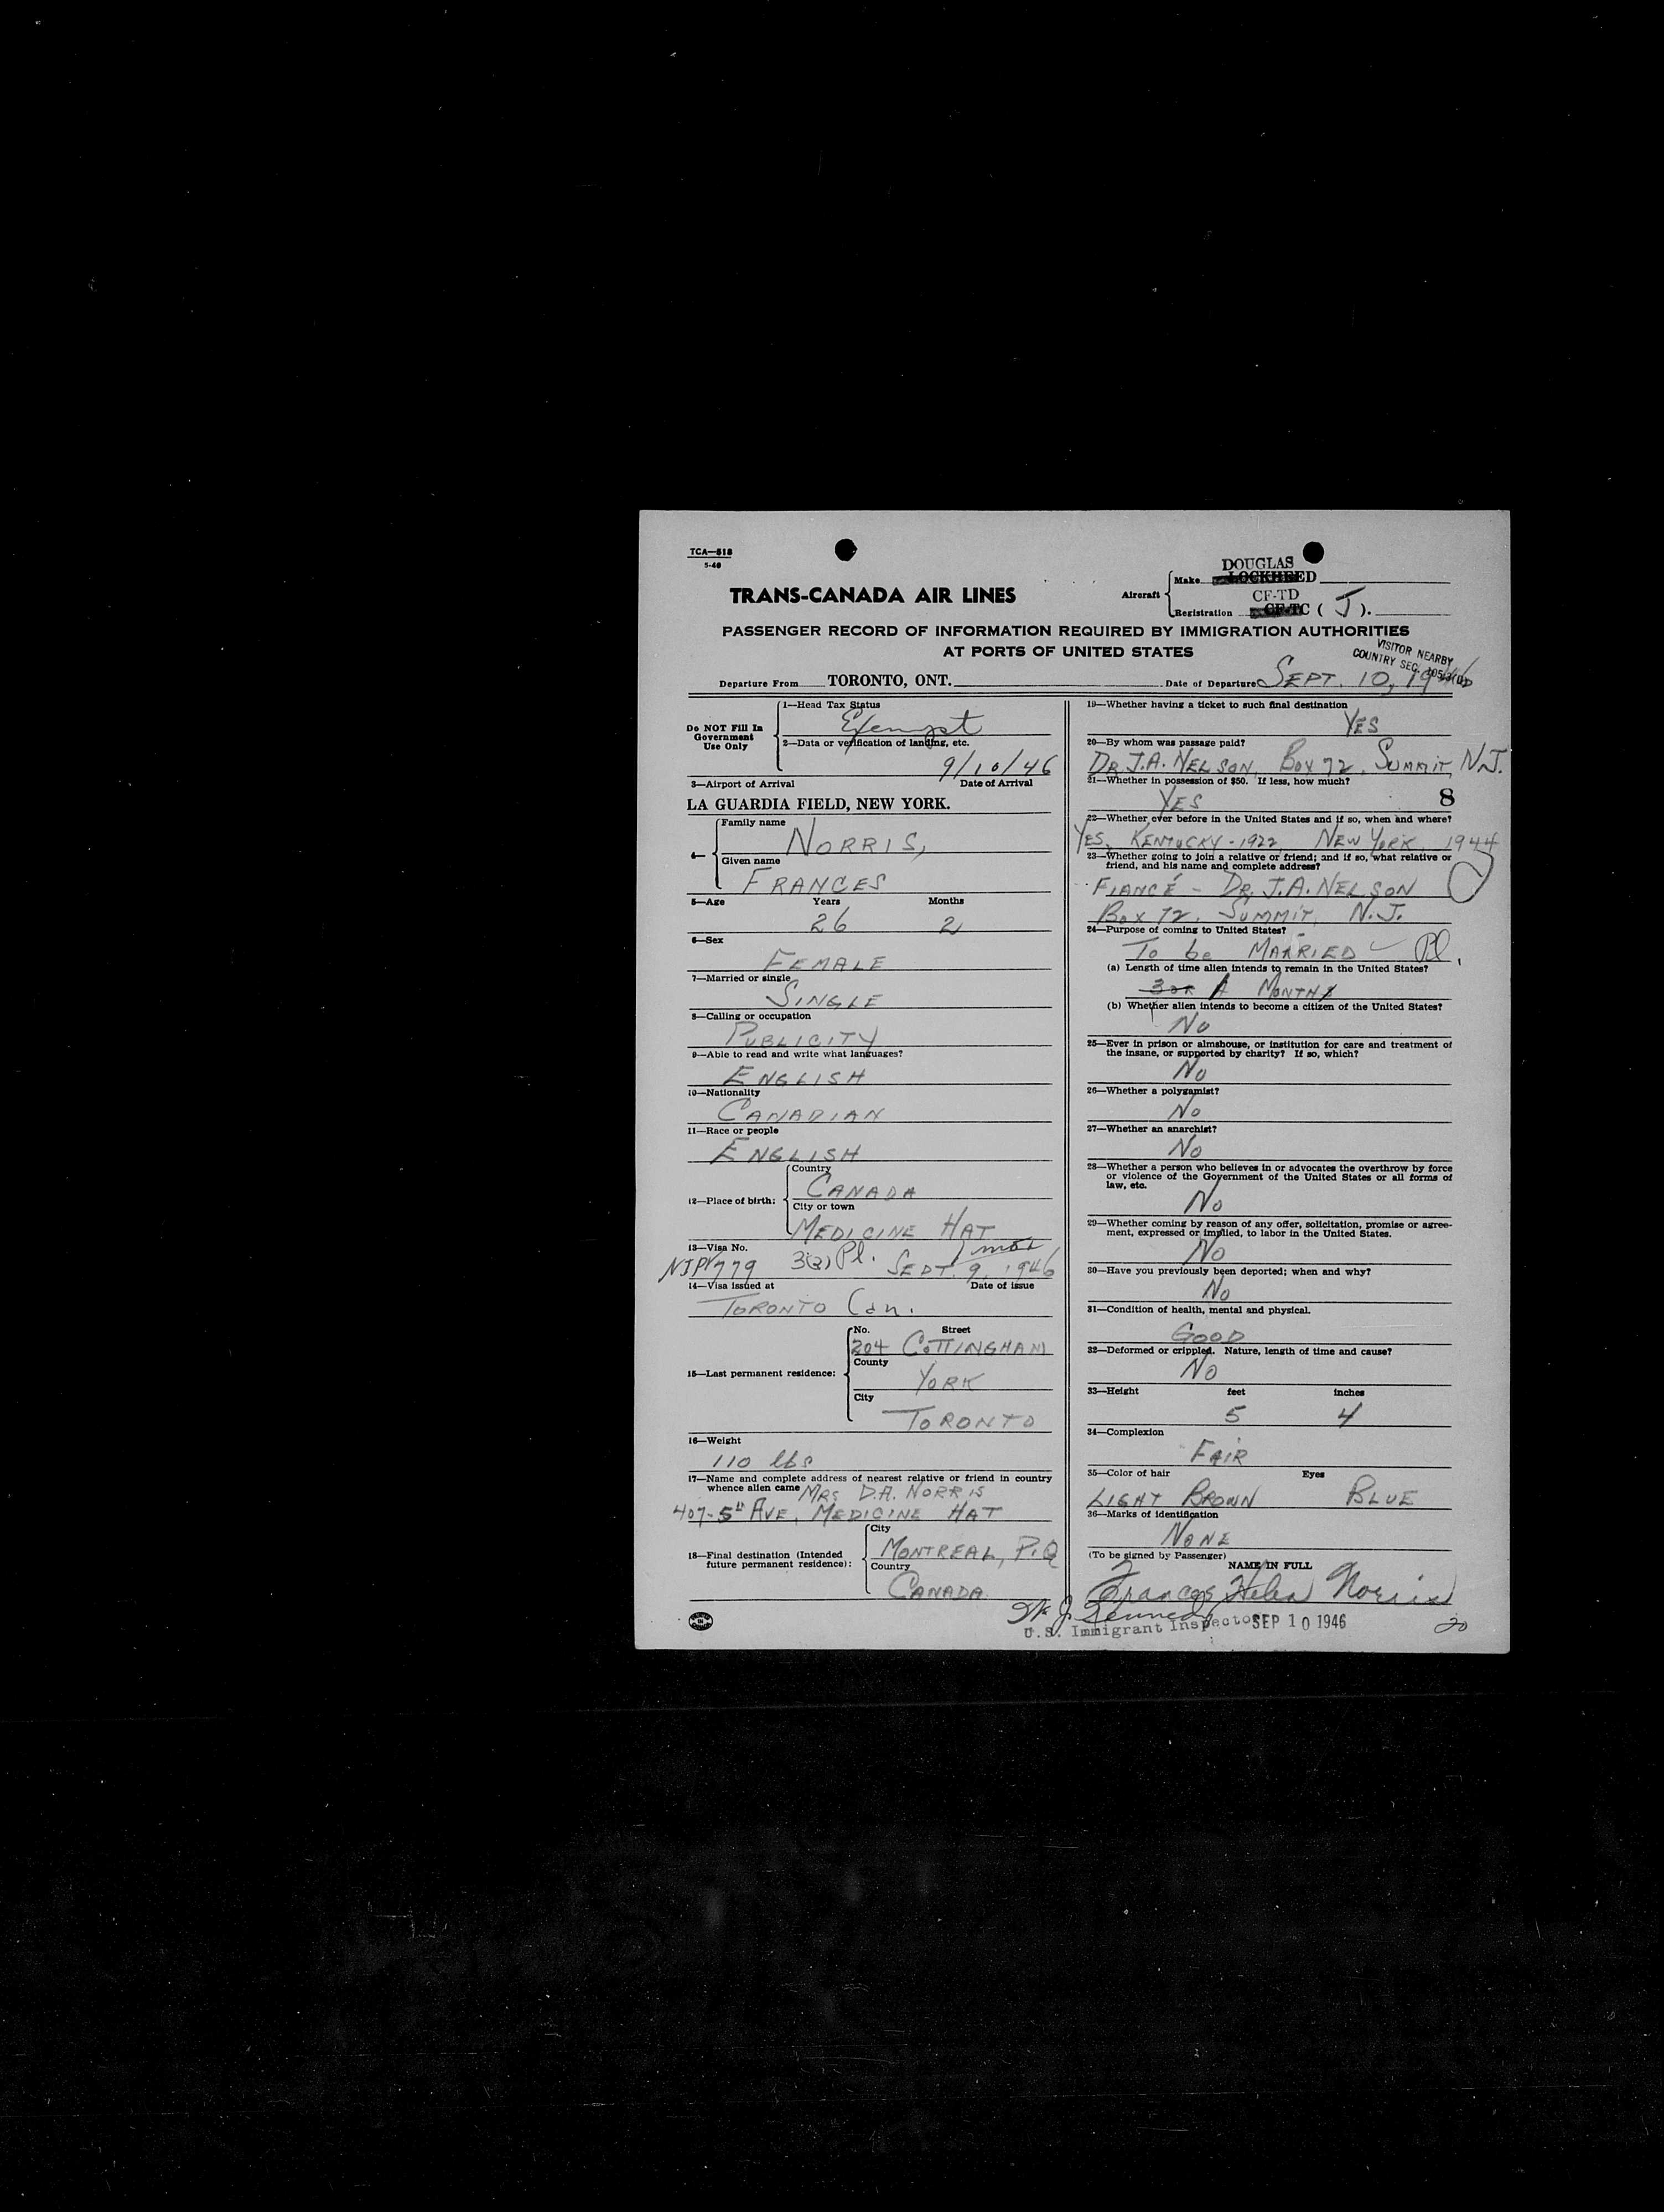 TCA—518
5-46
DOUGLAS
Make LOCKHEED
TRANS-CANADA AIR LINES
Aircraft
CF-TD
Registration CF-TC ( J ).
PASSENGER RECORD OF INFORMATION REQUIRED BY IMMIGRATION AUTHORITIES
AT PORTS OF UNITED STATES
VISITOR NEARBY
COUNTRY SEC.
Departure From TORONTO, ONT. Date of Departure SEPT. 10, 1946
Do NOT Fill In
Government
Use Only
1—Head Tax Status
Exempt
2—Data or verification of landing, etc.
9/10/46
3—Airport of Arrival Date of Arrival
LA GUARDIA FIELD, NEW YORK.
4—
Family name
NORRIS,
Given name
FRANCES
5—Age Years Months
26 2
6—Sex
FEMALE
7—Married or single
SINGLE
8—Calling or occupation
PUBLICITY
9—Able to read and write what languages?
ENGLISH
10—Nationality
CANADIAN
11—Race or people
ENGLISH
12—Place of birth:
Country
CANADA
City or town
MEDICINE HAT
13—Visa No.
NIPV779 3(2) Pl. SEPT. 9, 1946
14—Visa issued at Date of issue
TORONTO Can.
15—Last permanent residence:
No. Street
204 COTTINGHAM
County
YORK
City
TORONTO
16—Weight
110 lbs
17—Name and complete address of nearest relative or friend in country
whence alien came MRS D.A. NORRIS
407-5th AVE, MEDICINE HAT
18—Final destination (Intended
future permanent residence):
City
MONTREAL, P.Q
Country
CANADA
19—Whether having a ticket to such final destination
YES
20—By whom was passage paid?
DR J.A. NELSON, BOX 72, SUMMIT, N.J.
21—Whether in possession of $50. If less, how much?
YES 8
22—Whether ever before in the United States and if so, when and where?
YES, KENTUCKY-1922, NEW YORK, 1944
23—Whether going to join a relative or friend; and if so, what relative or
friend, and his name and complete address?
FIANCÉ - DR. J.A. NELSON
BOX 72, SUMMIT, N.J.
24—Purpose of coming to United States?
To be MARRIED Pl.
(a) Length of time alien intends to remain in the United States?
3 or A MONTH
(b) Whether alien intends to become a citizen of the United States?
No
25—Ever in prison or almshouse, or institution for care and treatment of
the insane, or supported by charity? If so, which?
No
26—Whether a polygamist?
No
27—Whether an anarchist?
No
28—Whether a person who believes in or advocates the overthrow by force
or violence of the Government of the United States or all forms of
law, etc.
No
29—Whether coming by reason of any offer, solicitation, promise or agree-
ment, expressed or implied, to labor in the United States.
No
30—Have you previously been deported; when and why?
No
31—Condition of health, mental and physical.
GOOD
32—Deformed or crippled. Nature, length of time and cause?
No
33—Height feet inches
5 4
34—Complexion
FAIR
35—Color of hair Eyes
LIGHT BROWN BLUE
36—Marks of identification
NONE
(To be signed by Passenger)
NAME IN FULL
Frances Helen Norris
J. Kennedy
U.S. Immigrant Inspector SEP 10 1946
20